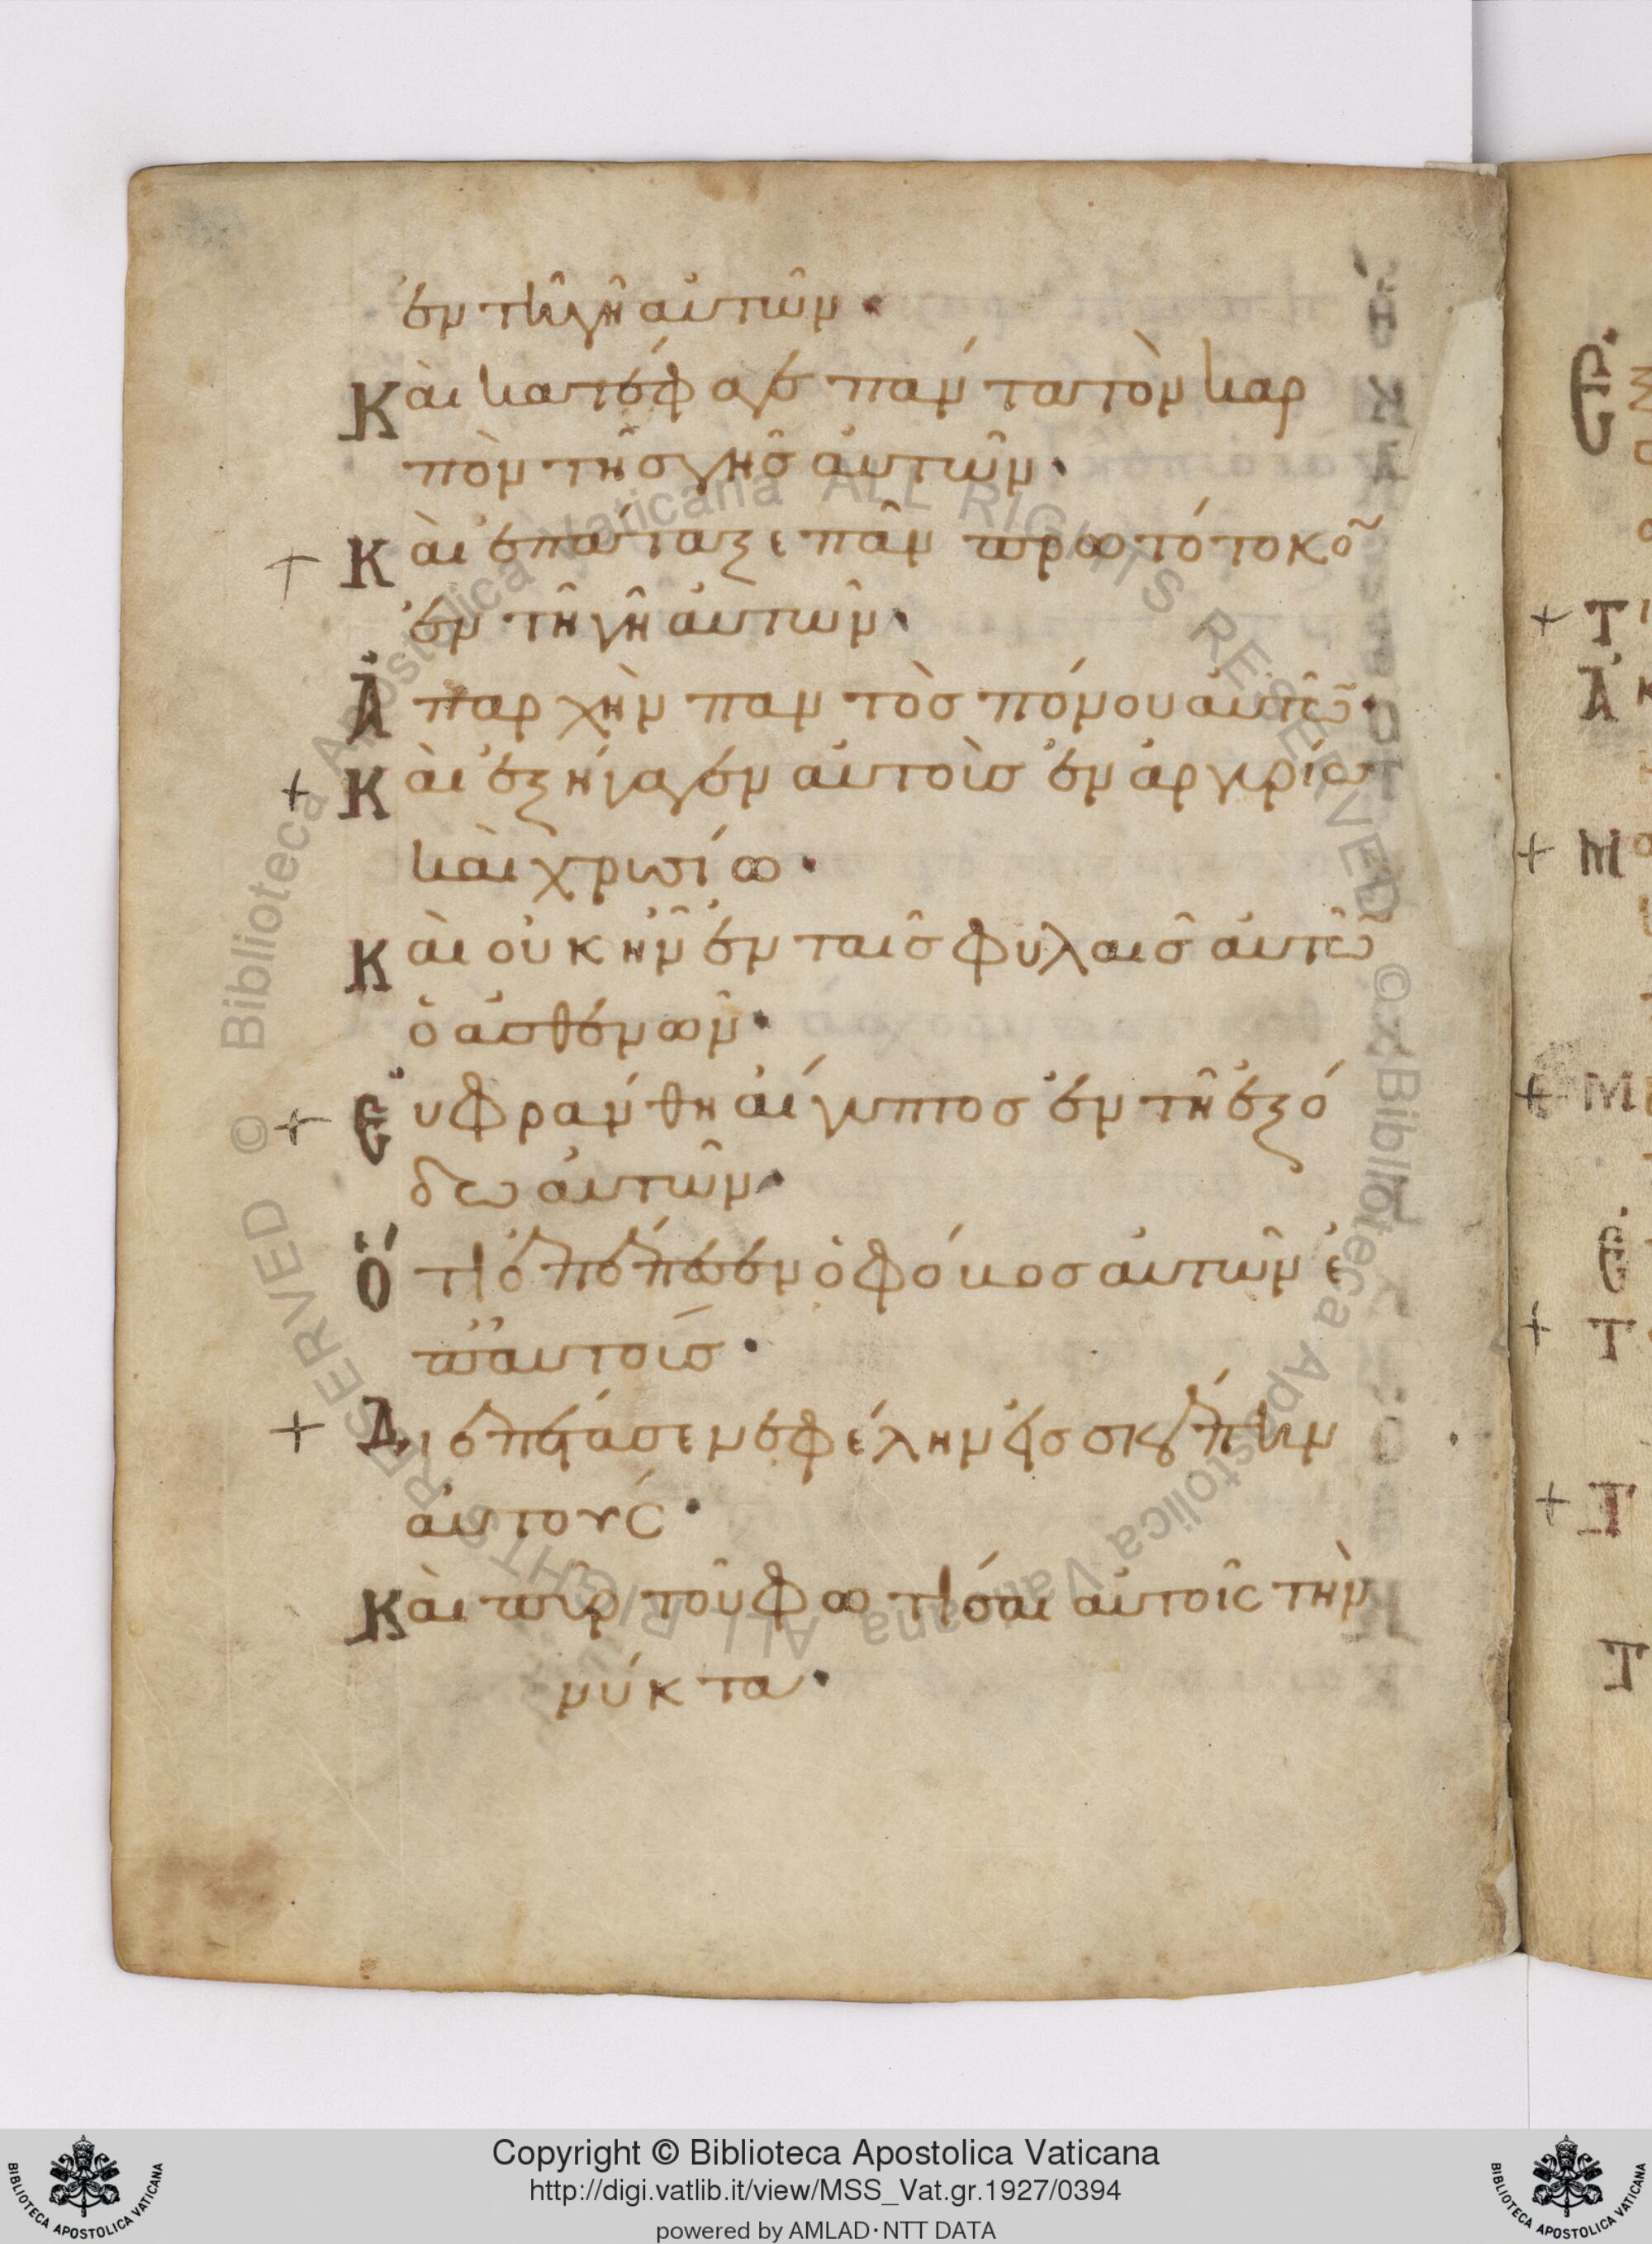 ἐν τῆ γῆ αὐτῶν·
Καὶ κατέφαγε πάντα τὸν καρ
πὸν τῆς γῆς αὐτῶν·
+ Καὶ ἐπάταξε πᾶν πρωτότοκο̃
ἐν τῆ γῆ αὐτῶν·
Ἀπαρχὴν παντὸς πόνου αὐτῶ̃·
+ Καὶ ἐξήγαγεν αὐτοὺς ἐν ἀργυρίω
καὶ χρυσίω·
Καὶ οὐκ ἦν ἐν ταῖς φυλαῖς αὐτῶ̃
ὁ ἀσθένων·
+ Εὐφράνθη αἴγυπτος ἐν τῆ ἐξό
δω αὐτῶν·
Ὅτι ἐπέπεσεν ὁ φόβος αὐτῶν ἐ
π' αὐτούς·
+ Διεπέτασε νεφέλην εἰς σκέπην
αὐτούς·
Καὶ πῦρ τοῦ φωτίσαι αὐτοῖς τὴν
νύκτα·
Copyright © Biblioteca Apostolica Vaticana
http://digi.vatlib.it/view/MSS_Vat.gr.1927/0394
powered by AMLAD·NTT DATA
BIBLIOTECA APOSTOLICA VATICANA
BIBLIOTECA APOSTOLICA VATICANA